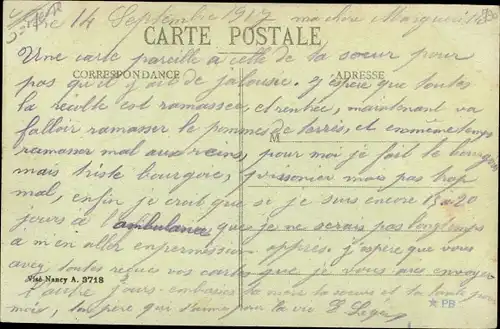 14 Septembre 1917 ma chere Marguerite
CARTE POSTALE
Une carte pareille a celle de ta soeur pour
CORRESPONDANCE
ADRESSE
pas qu'il y ait de jalousie. j'espere que toutes
la recolte est ramassee, et rentree, maintenant va
falloir ramasser le pommes de terres, et en même temps
M
ramasser mal aux reins, pour moi je fait le bourgeois
mais triste bourgois, mais pas trop
mal, enfin je croit que si je suis encore 15 a 20
jours a l'ambulance, que je ne serais pas longtemps
a m'en aller en permission apres. j'espere que vous
avez toutes reçue vos cartes que je vous ais envoyer
Visé Nancy A. 3718
l'autre jours. embrasse ta mere ta soeur et ta tante pour
PB
moi, ton pere qui t'aime pour la vie